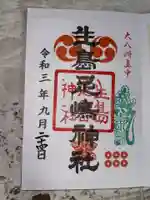 大八洲真中
生島足島神社
生島
神社
令和三年九月二十四日